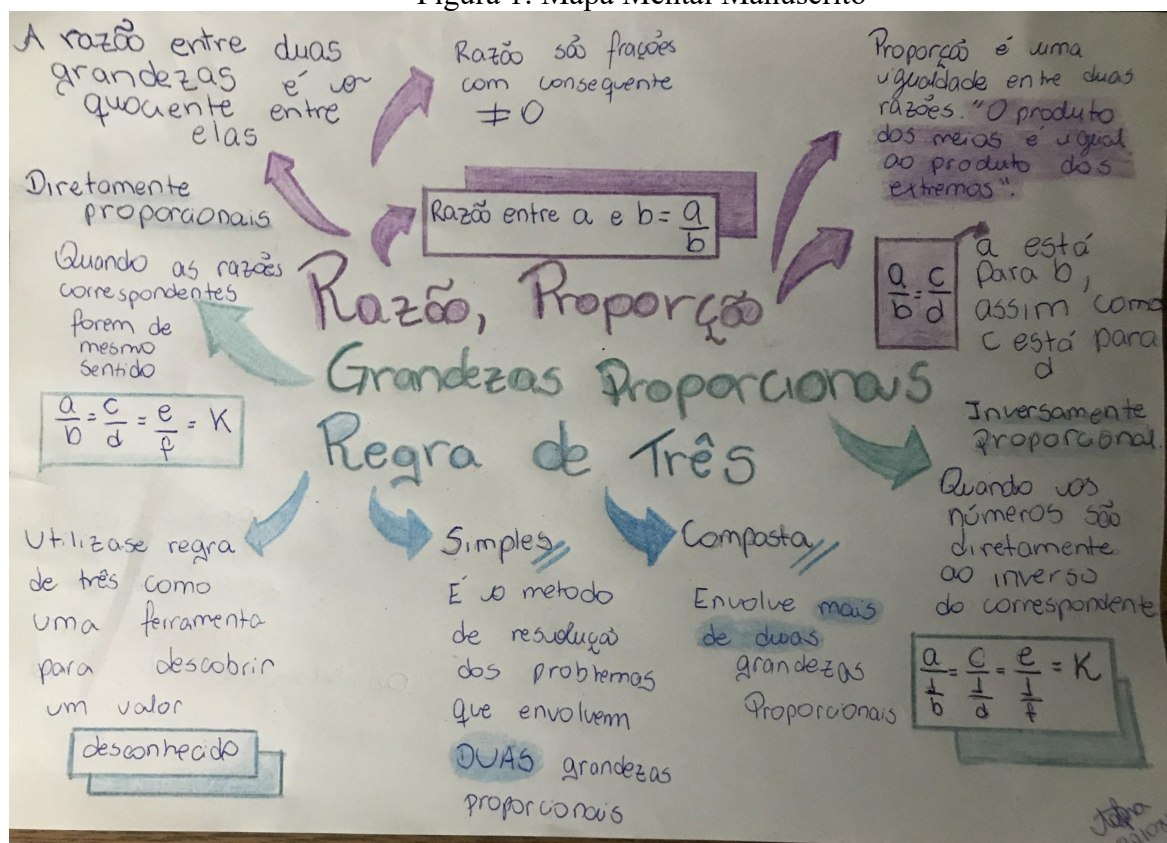 Figura 1: Mapa Mental Manuscrito
A razão entre duas
grandezas é o
quociente entre
elas
Razão são frações
com consequente
≠ 0
Proporção é uma
igualdade entre duas
razões. "O produto
dos meios é igual
ao produto dos
extremos".
Razão entre a e b = a/b
a/b = c/d
a está
para b,
assim como
c está para
d
Razão, Proporção
Grandezas Proporcionais
Regra de Três
Diretamente
proporcionais
Quando as razões
correspondentes
forem de
mesmo
sentido
a/b = c/d = e/f = K
Inversamente
proporcional.
Quando os
números são
diretamente
ao inverso
do correspondente
a/(1/b) = c/(1/d) = e/(1/f) = K
Utilizase regra
de três como
uma ferramenta
para descobrir
um valor
desconhecido
Simples
É o metodo
de resolução
dos problemas
que envolvem
DUAS grandezas
proporcionais
Composta
Envolve mais
de duas
grandezas
Proporcionais